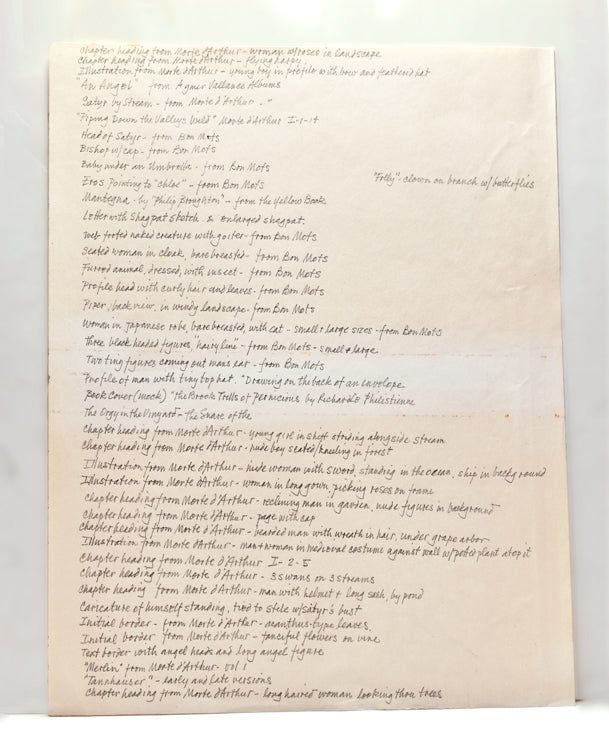 Chapter heading from Morte d'Arthur - woman w/roses in landscape
Chapter heading from Morte d'Arthur - flying harpy.
Illustration from Morte d'Arthur - young boy in profile with bow and feathered hat
"An Angel" from Aymer Vallance Albums
Satyr by Stream - from Morte d'Arthur
"Piping Down the Valleys Wild" Morte d'Arthur I-1-14
Head of Satyr - from Bon Mots
Bishop w/cap - from Bon Mots
Baby under an Umbrella - from Bon Mots
"Folly" - clown on branch w/ butterflies
Eros Pointing to "Chloe" - from Bon Mots
Mantegna - by "Philip Broughton" - from the Yellow Book
Letter with Shagpat Sketch & enlarged shagpat.
Web footed naked creature with goiter - from Bon Mots
Seated woman in cloak, bare breasted - from Bon Mots
Furred animal, dressed, with insect - from Bon Mots
Profile head with curly hair and leaves - from Bon Mots
Piper, back view, in windy landscape - from Bon Mots
Woman in Japanese robe, bare breasted, with cat - small & large sizes - from Bon Mots
Three black headed figures, "hairy line" - from Bon Mots - small & large
Two tiny figures coming out man's ear - from Bon Mots
Profile of man with tiny top hat. "Drawing on the back of an envelope
Book Cover (mock) "the Brook Trolls of Pernicious by Richard Philistienne
The Orgy in the Vinyard - The Snare of the
Chapter heading from Morte d'Arthur - young girl in shift striding alongside stream
Chapter heading from Morte d'Arthur - nude boy seated/kneeling in forest
Illustration from Morte d'Arthur - nude woman with sword, standing in the ocean, ship in background
Illustration from Morte d'Arthur - woman in long gown, picking roses on frame
Chapter heading from Morte d'Arthur - reclining man in garden, nude figures in background
Chapter heading from Morte d'Arthur - page with cap
Chapter heading from Morte d'Arthur - bearded man with wreath in hair, under grape arbor
Illustration from Morte d'Arthur - man & woman in medieval costume against wall w/potted plant atop it
Chapter heading from Morte d'Arthur I-2-5
Chapter heading from Morte d'Arthur - 3 swans on 3 streams
Chapter heading from Morte d'Arthur - man with helmet & long sash, by pond
Caricature of himself standing, tied to stele w/satyr's bust
Initial border - from Morte d'Arthur - acanthus-type leaves
Initial border from Morte d'Arthur - fanciful flowers on vine
Text border with angel heads and long angel figure
"Merlin" from Morte d'Arthur - Vol I
"Tannhauser" - early and late versions
Chapter heading from Morte d'Arthur - long haired woman looking thru trees